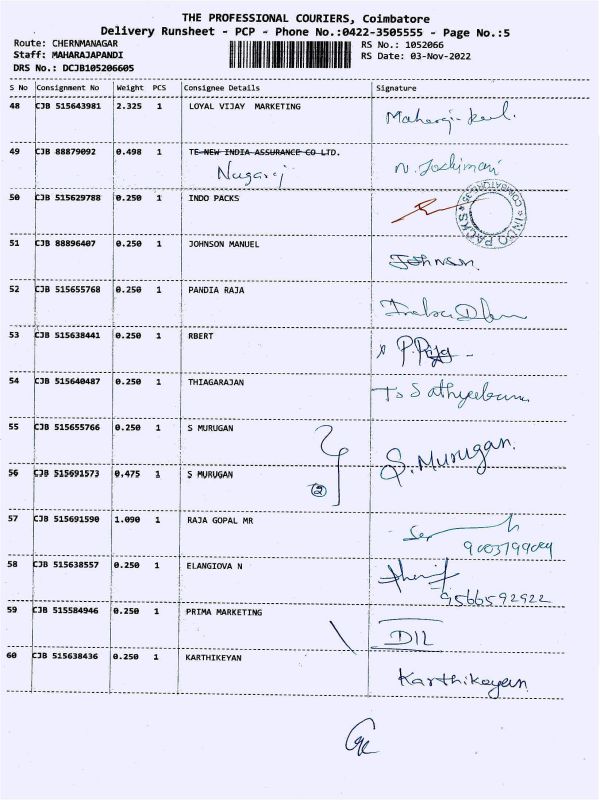 THE PROFESSIONAL COURIERS, Coimbatore
Delivery Runsheet - PCP - Phone No.:0422-3505555 - Page No.:5
Route: CHERNMANAGAR
RS No.: 1052066
Staff: MAHARAJAPANDI
RS Date: 03-Nov-2022
DRS No.: DCJB105206605
S No Consignment No Weight PCS Consignee Details Signature
48 CJB 515643981 2.325 1 LOYAL VIJAY MARKETING
49 CJB 88879092 0.498 1 TE NEW INDIA ASSURANCE CO LTD.
Nagaraj
50 CJB 515629788 0.250 1 INDO PACKS
INDO PACKS COIMBATORE-35
51 CJB 88896407 0.250 1 JOHNSON MANUEL
Johnson.
52 CJB 515655768 0.250 1 PANDIA RAJA
53 CJB 515638441 0.250 1 RBERT
P. Raja
54 CJB 515640487 0.250 1 THIAGARAJAN
55 CJB 515655766 0.250 1 S MURUGAN
S. Murugan.
56 CJB 515691573 0.475 1 S MURUGAN
2
57 CJB 515691590 1.090 1 RAJA GOPAL MR
58 CJB 515638557 0.250 1 ELANGIOVA N
9566592922
59 CJB 515584946 0.250 1 PRIMA MARKETING
60 CJB 515638436 0.250 1 KARTHIKEYAN
Karthikeyan